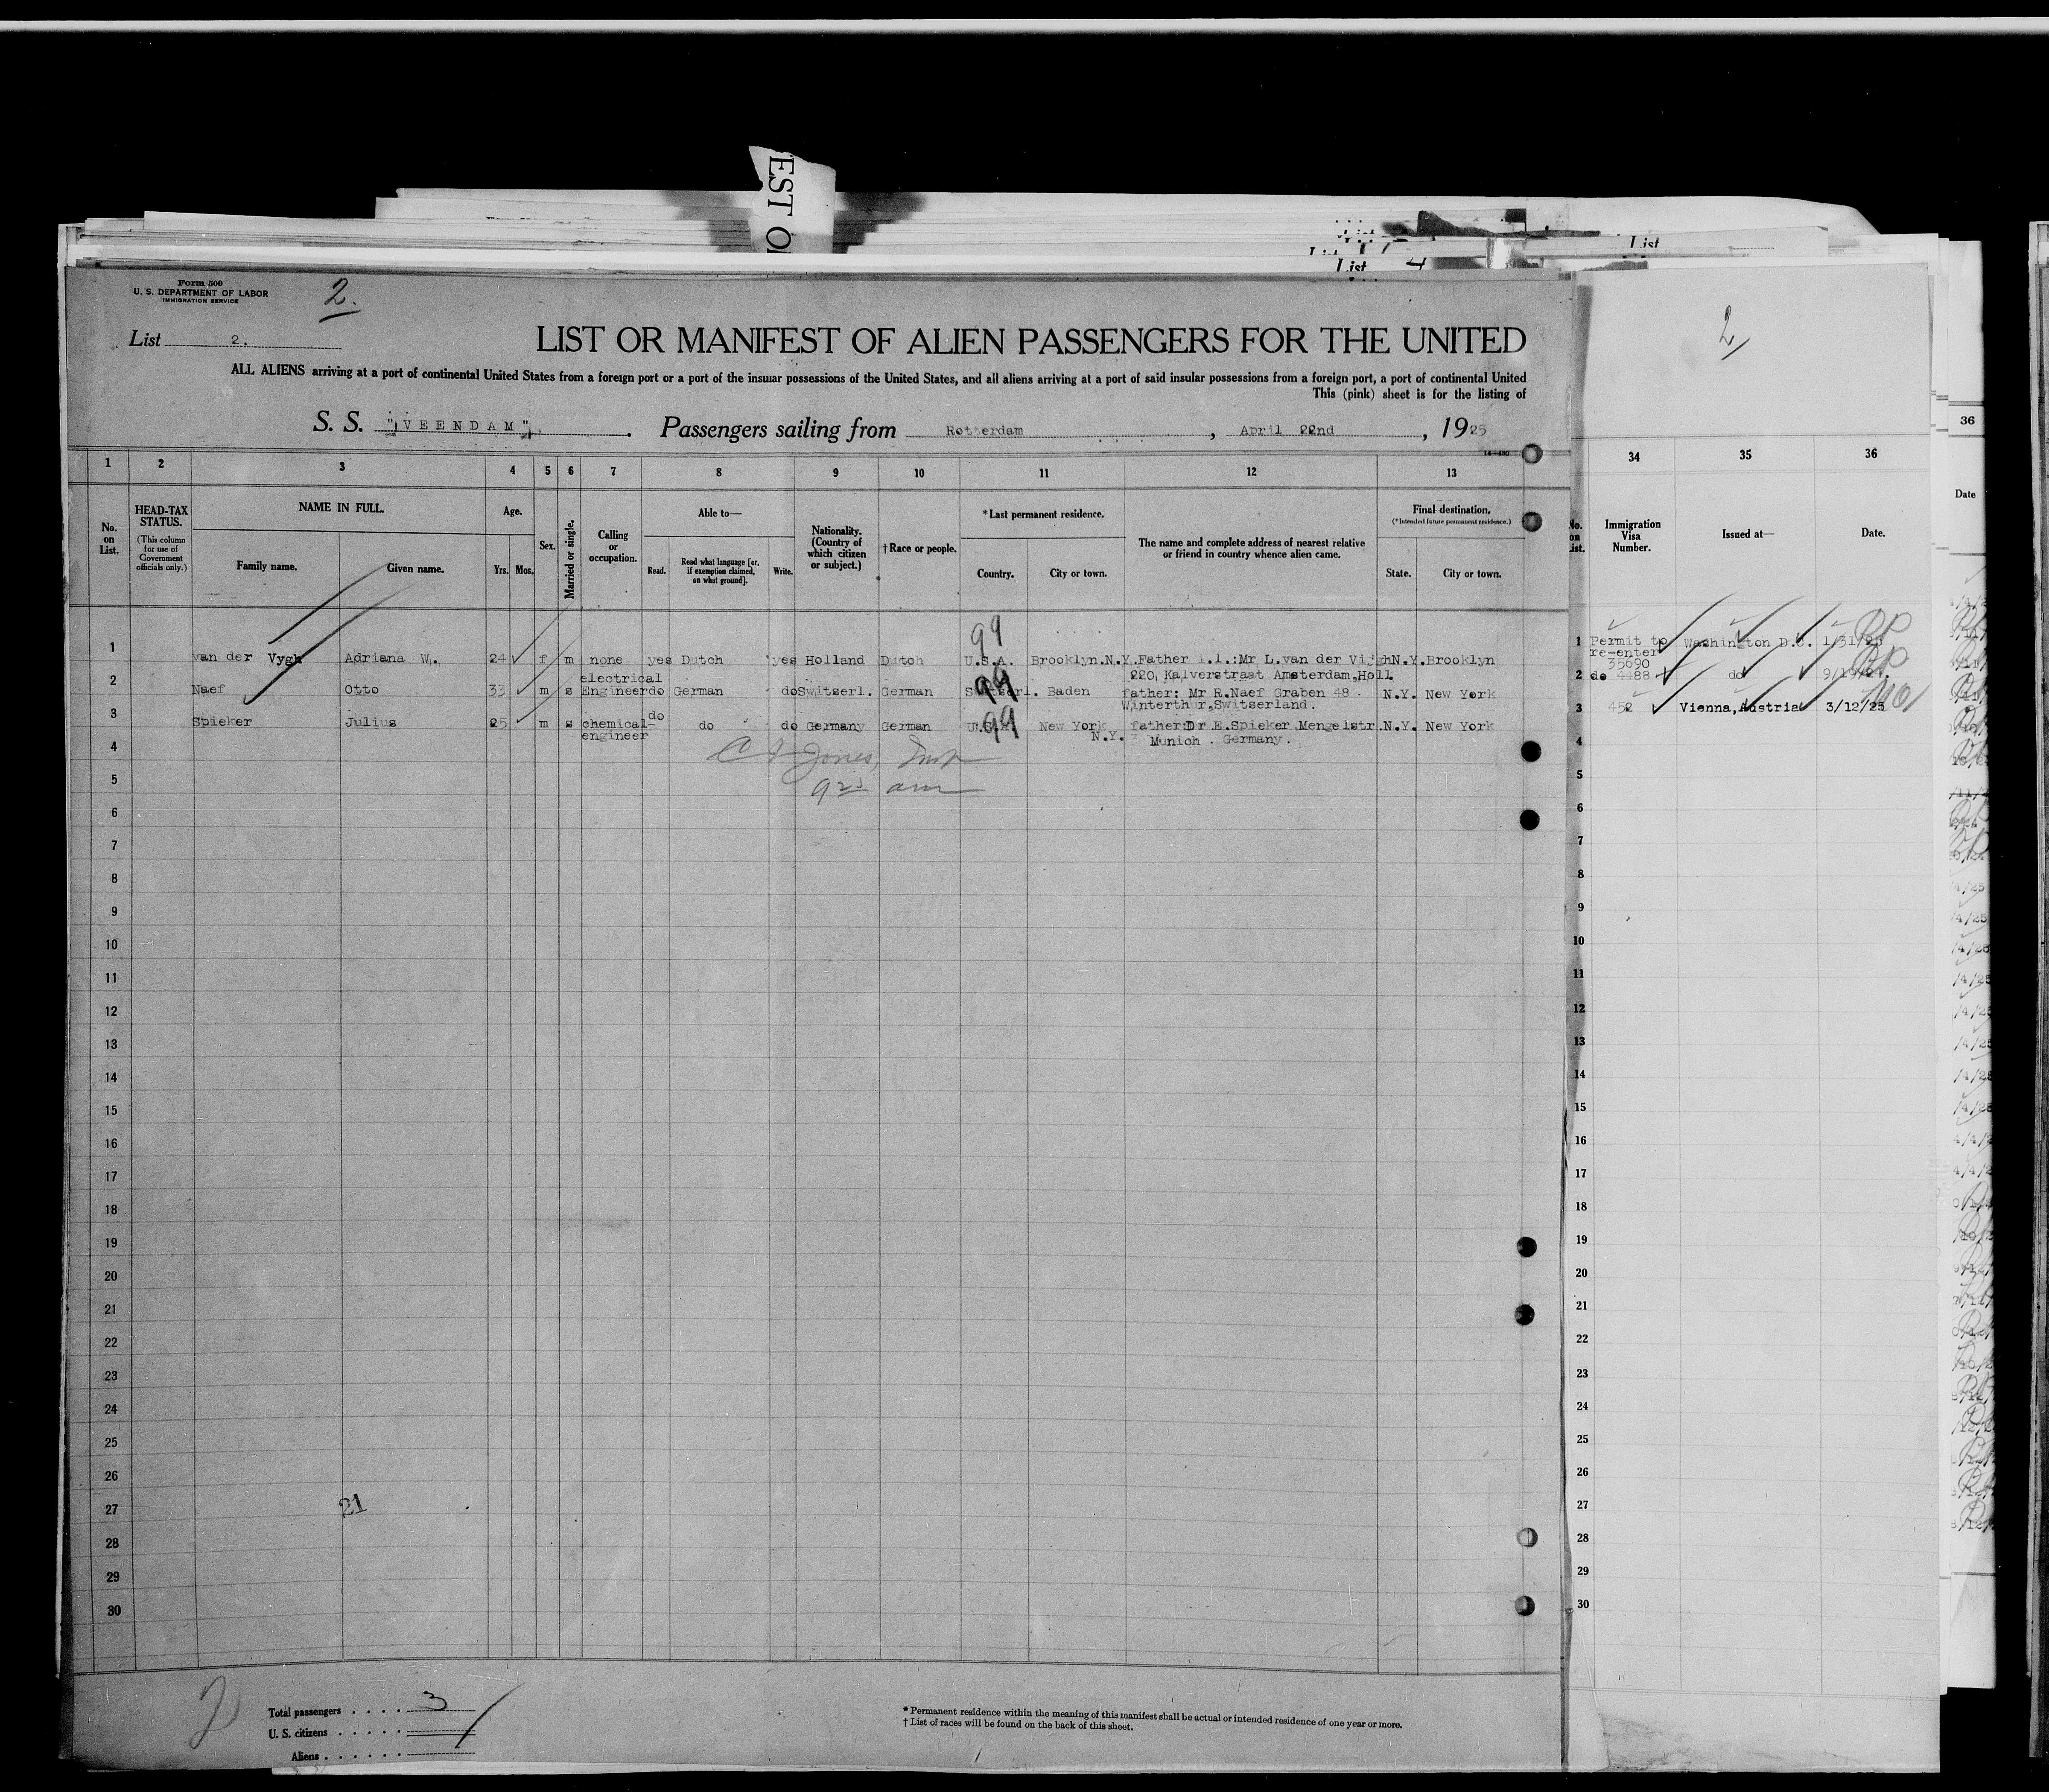 EST O
List
List 4
Form 500
U. S. DEPARTMENT OF LABOR
IMMIGRATION SERVICE
2.
2
List 2.
LIST OR MANIFEST OF ALIEN PASSENGERS FOR THE UNITED
ALL ALIENS arriving at a port of continental United States from a foreign port or a port of the insular possessions of the United States, and all aliens arriving at a port of said insular possessions from a foreign port, a port of continental United
This (pink) sheet is for the listing of
S. S. "VEENDAM". Passengers sailing from Rotterdam, April 22nd, 1925
36
14—430
1 2 3 4 5 6 7 8 9 10 11 12 13 34 35 36
No. on List.
HEAD-TAX STATUS.
(This column for use of Government officials only.)
NAME IN FULL.
Family name. Given name.
Age.
Yrs. Mos.
Sex.
Married or single.
Calling or occupation.
Able to—
Read. Read what language [or, if exemption claimed, on what ground]. Write.
Nationality. (Country of which citizen or subject.)
† Race or people.
*Last permanent residence.
Country. City or town.
The name and complete address of nearest relative or friend in country whence alien came.
Final destination.
(*Intended future permanent residence.)
State. City or town.
No. on List.
Immigration Visa Number.
Issued at—
Date.
Date
99
1 van der Vygh Adriana W. 24 f m none yes Dutch yes Holland Dutch U.S.A. Brooklyn.N.Y. Father i.l.:Mr L.van der Vijgh N.Y. Brooklyn
220, Kalverstraat Amsterdam,Holl.
1 Permit to re-enter 35690 Washington D.C. 1/31/25
electrical
2 Naef Otto 33 m s Engineer do German do Switserl. German Switserl. Baden father: Mr R.Naef Graben 48 N.Y. New York
Winterthur,Switserland.
99
2 do 4488 do 9/19/24.
3 Spieker Julius 25 m s chemical- engineer do do do Germany German U.S.A. New York N.Y. father:Dr E.Spieker Mengelstr. N.Y. New York
Munich . Germany.
99
3 452 Vienna,Austria 3/12/25
Jones,
am
4 4
5 5
6 6
7 7
8 8
9 9
10 10
11 11
12 12
13 13
14 14
15 15
16 16
17 17
18 18
19 19
20 20
21 21
22 22
23 23
24 24
25 25
26 26
27 21 27
28 28
29 29
30 30
2
Total passengers . . . . 3
U. S. citizens . . . . .
Aliens . . . . . .
* Permanent residence within the meaning of this manifest shall be actual or intended residence of one year or more.
† List of races will be found on the back of this sheet.